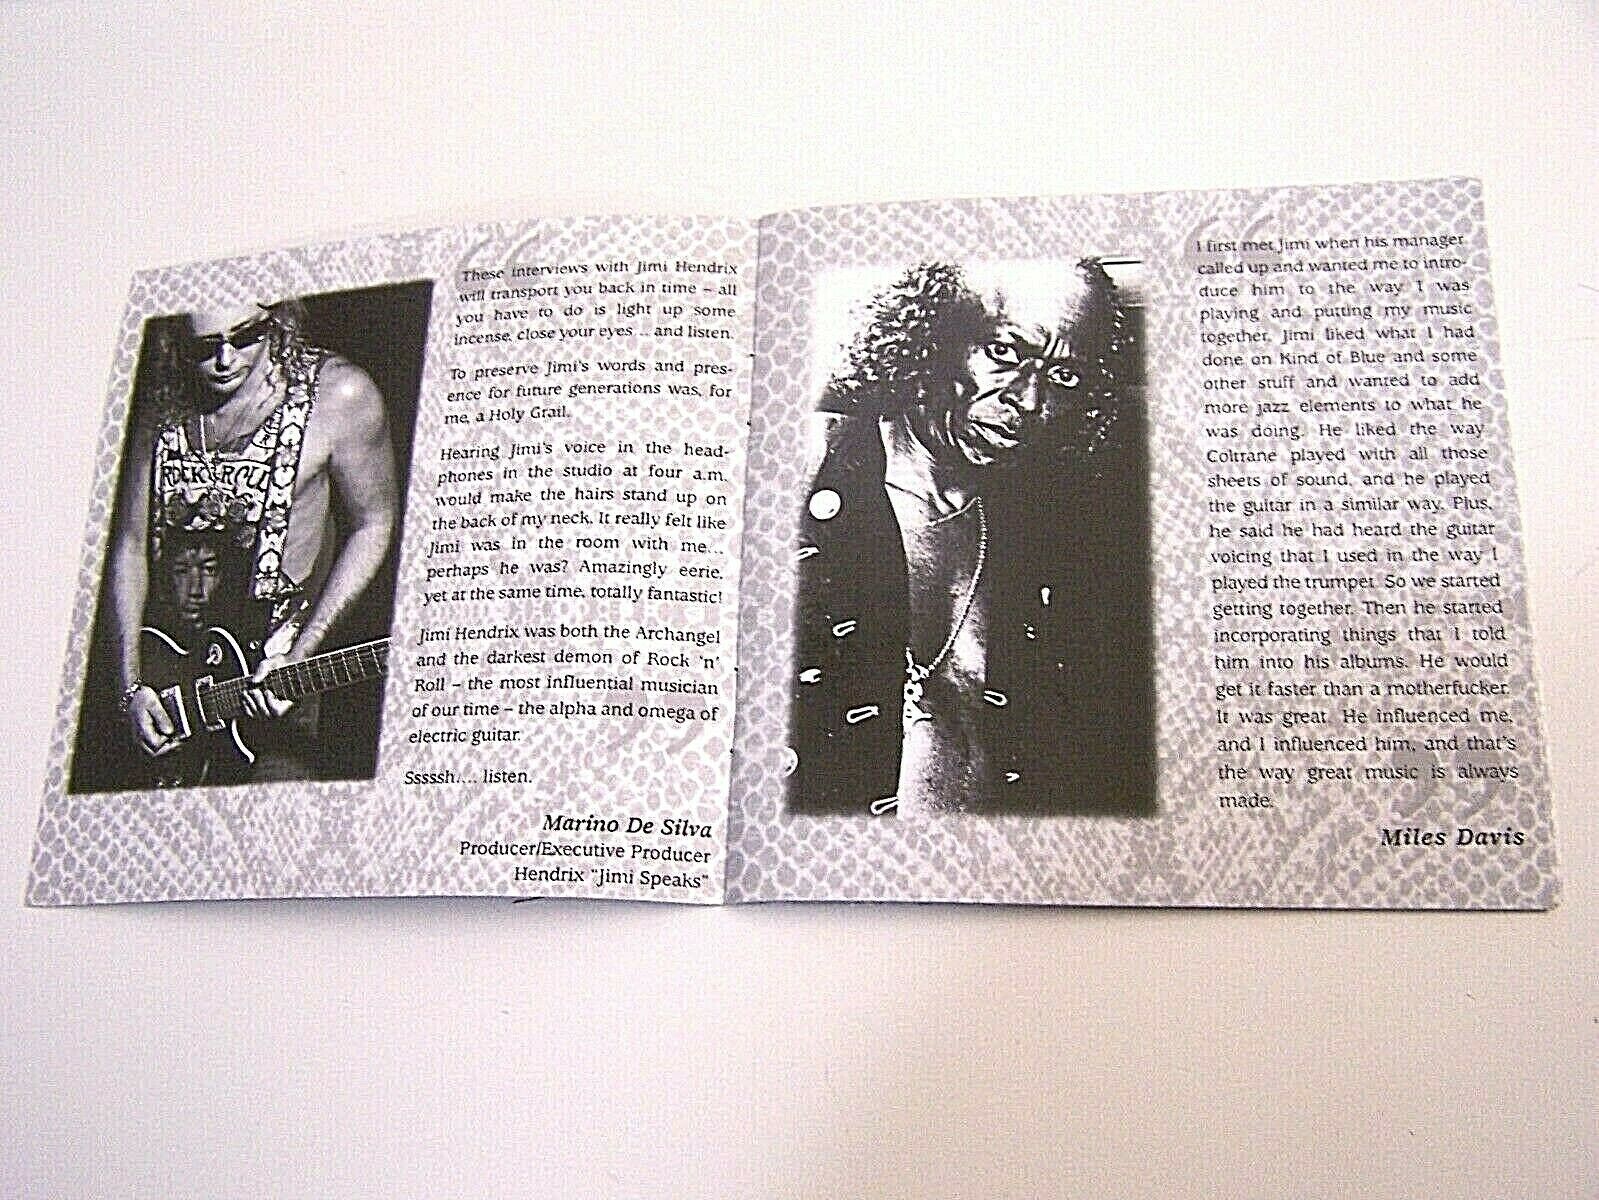 ROCK & ROLL
These interviews with Jimi Hendrix
will transport you back in time – all
you have to do is light up some
incense, close your eyes... and listen.
To preserve Jimi's words and pres-
ence for future generations was, for
me, a Holy Grail.
Hearing Jimi's voice in the head-
phones in the studio at four a.m.
would make the hairs stand up on
the back of my neck. It really felt like
Jimi was in the room with me...
perhaps he was? Amazingly eerie,
yet at the same time, totally fantastic!
Jimi Hendrix was both the Archangel
and the darkest demon of Rock 'n'
Roll – the most influential musician
of our time – the alpha and omega of
electric guitar.
Sssssh.... listen.
Marino De Silva
Producer/Executive Producer
Hendrix "Jimi Speaks"
I first met Jimi when his manager
called up and wanted me to intro-
duce him to the way I was
playing and putting my music
together. Jimi liked what I had
done on Kind of Blue and some
other stuff and wanted to add
more jazz elements to what he
was doing. He liked the way
Coltrane played with all those
sheets of sound, and he played
the guitar in a similar way. Plus,
he said he had heard the guitar
voicing that I used in the way I
played the trumpet. So we started
getting together. Then he started
incorporating things that I told
him into his albums. He would
get it faster than a motherfucker.
It was great. He influenced me,
and I influenced him, and that's
the way great music is always
made.
Miles Davis